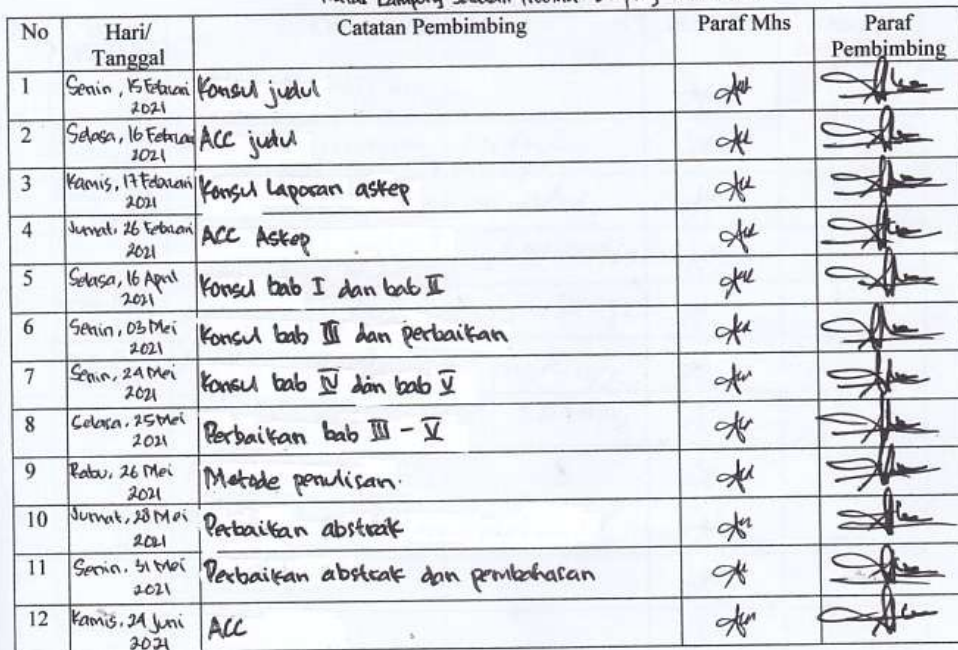 No Hari/ Tanggal Catatan Pembimbing Paraf Mhs Paraf Pembimbing
1 Senin, 15 Februari 2021 Konsul judul
2 Selasa, 16 Februari 2021 ACC judul
3 Kamis, 17 Februari 2021 Konsul Laporan askep
4 Jumat, 26 Februari 2021 ACC Askep
5 Selasa, 16 April 2021 Konsul bab I dan bab II
6 Senin, 03 Mei 2021 Konsul bab III dan perbaikan
7 Senin, 24 Mei 2021 Konsul bab IV dan bab V
8 Selasa, 25 Mei 2021 Perbaikan bab III - V
9 Rabu, 26 Mei 2021 Metode penulisan.
10 Jumat, 28 Mei 2021 Perbaikan abstrak
11 Senin, 31 Mei 2021 Perbaikan abstrak dan pembahasan
12 Kamis, 24 Juni 2021 ACC